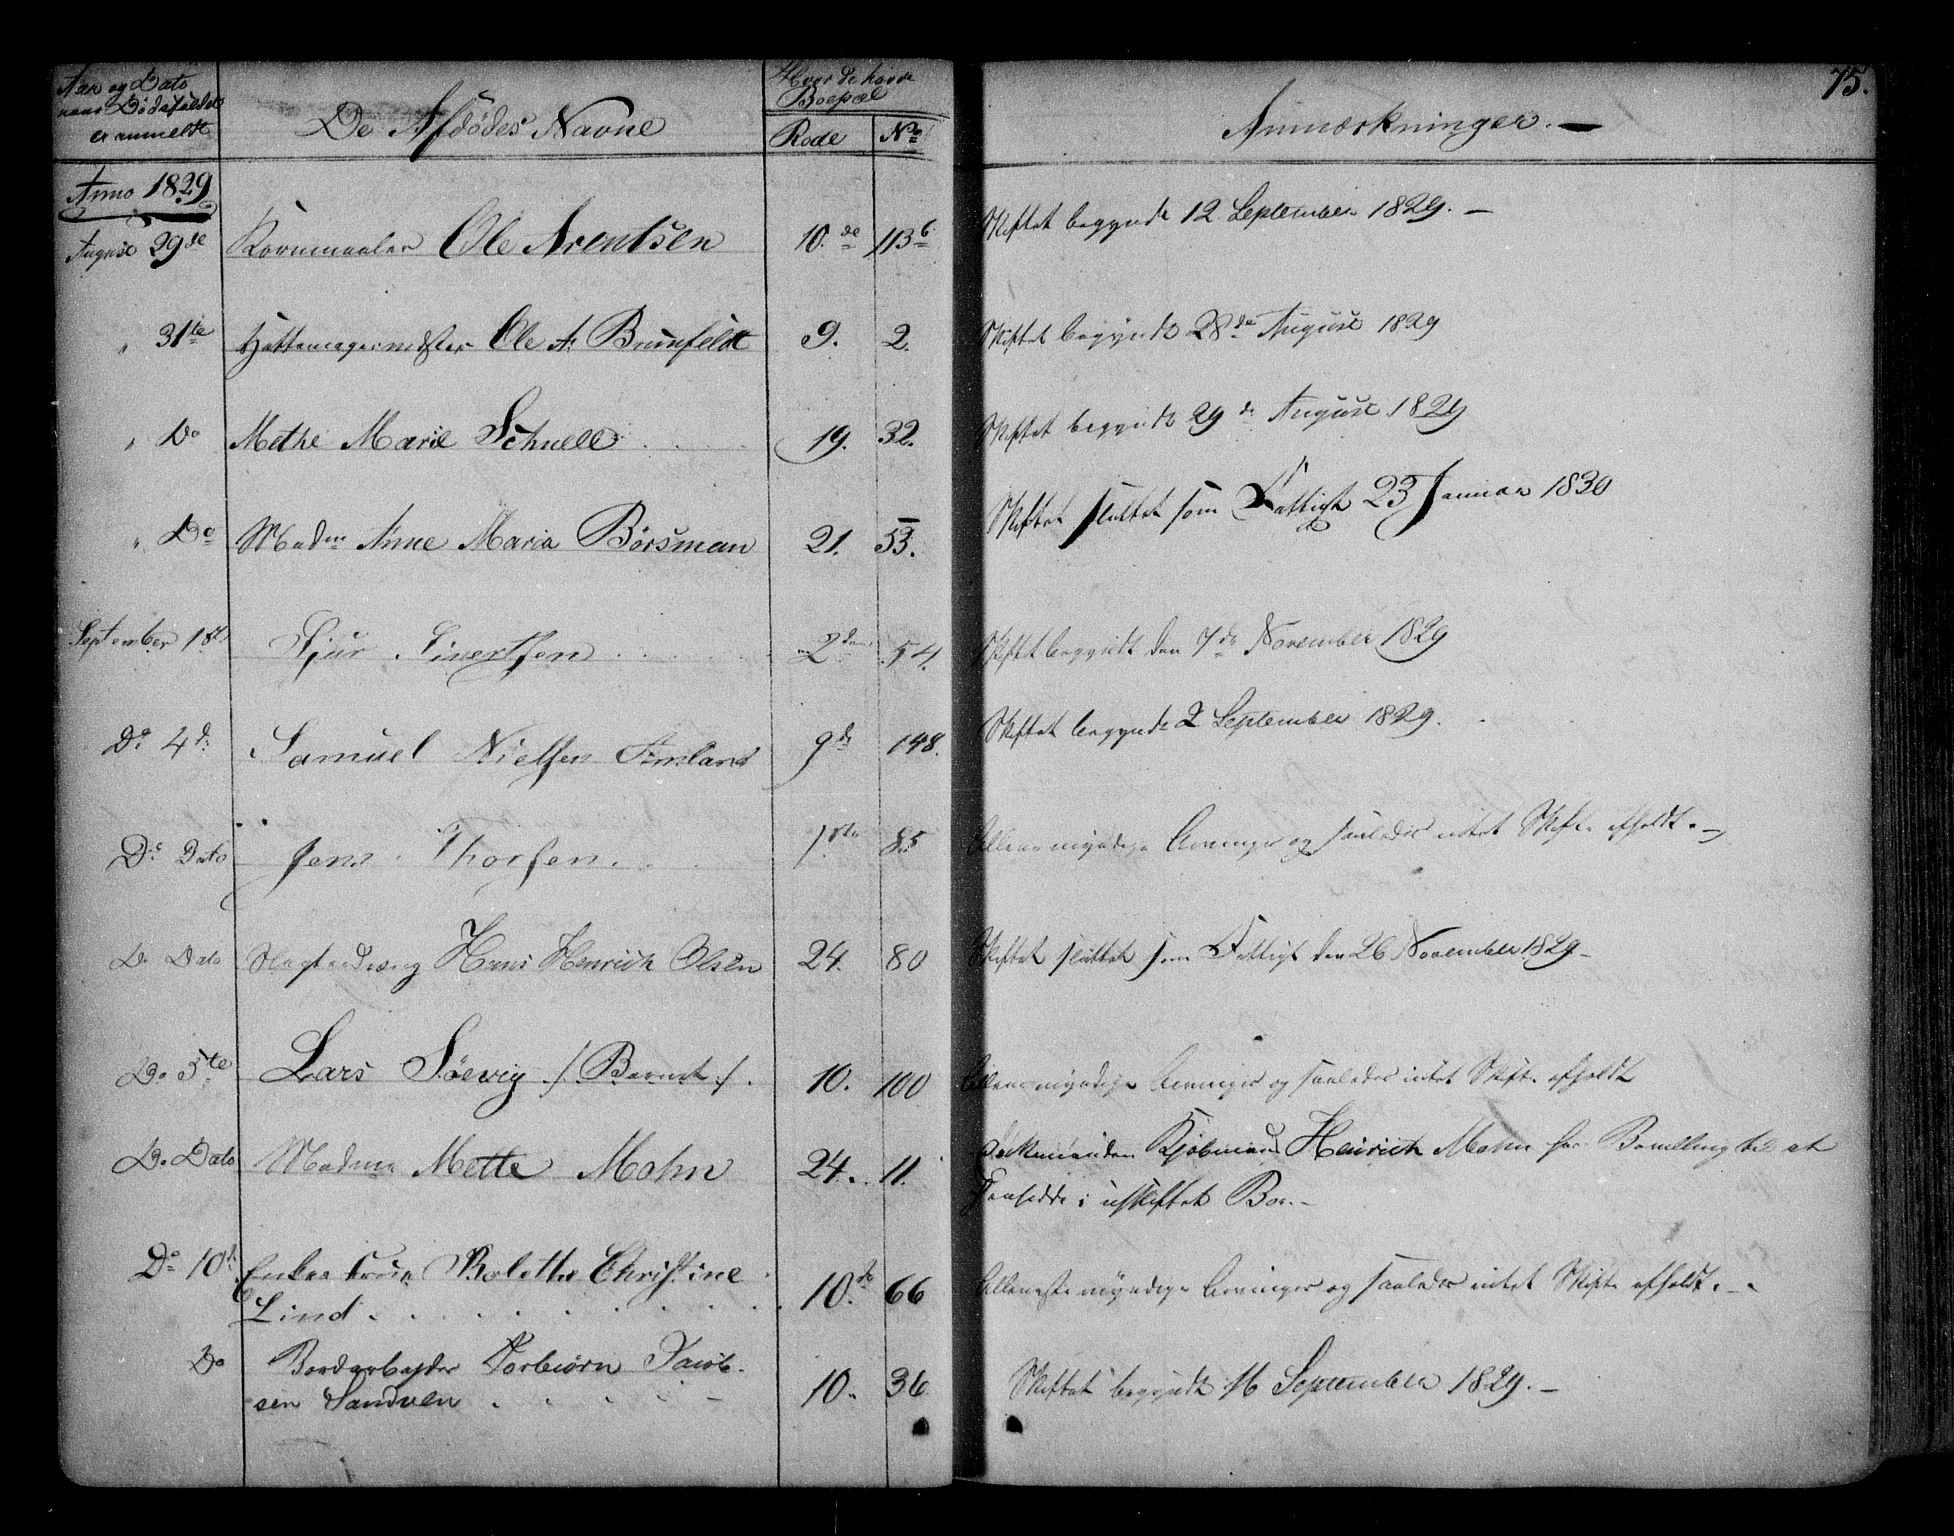 75.
Aar og Dato
naar Dødsfaldet
er anmeldt
De Afdødes Navne
Hvor de havde
Boepæl
Rode No
Anmærkninger. —
Anno 1829
August 29de Kornmaaler Ole Arentsen 10.de 113b Skiftet begyndt 12 September 1829. —
" 31te Hattemagermester Ole A: Brunfeldt 9. 2. Skiftet begyndt 28de August 1829
" Do Methe Marie Schnell 19. 32. Skiftet begyndt 29d. August 1829
" Do Madm Anne Maria Børsman 21. 53. Skiftet sluttet som Fattigt 23 Januar 1830
September 1st Sjur Sivertsen 2den 54. Skiftet begyndt den 7de November 1829
Do 4d: Samuel Nielsen Amland 9de 148. Skiftet begyndt 2 September 1829.
Do Dato Jens Thorsen. 1ste 85 myndige Arvinger og saaledes intet Skifte afholdt. —
Do Dato Hans Henrich Olsen 24. 80 Skiftet sluttet som Fattigt den 26 November 1829 —
Do 5te Lars Søevig /: Barnet :/. 10. 100 myndige Arvinger og saaledes intet Skifte afholdt
Do Dato Madme Mette Mohn 24. 11. Enkemanden Kjøbmand Henrich Mohn har Bevilling til at
hensidde i uskiftet Boe. —
Do 10d. Enkefrue Bolette Christine
Lind. 10.de 66 Alleneste myndige Arvinger og saaledes intet Skifte afholdt. —
Do Bordarbejder Torbiørn Jacob-
sen Sandven 10. 36 Skiftet begyndt 16 September 1829. —